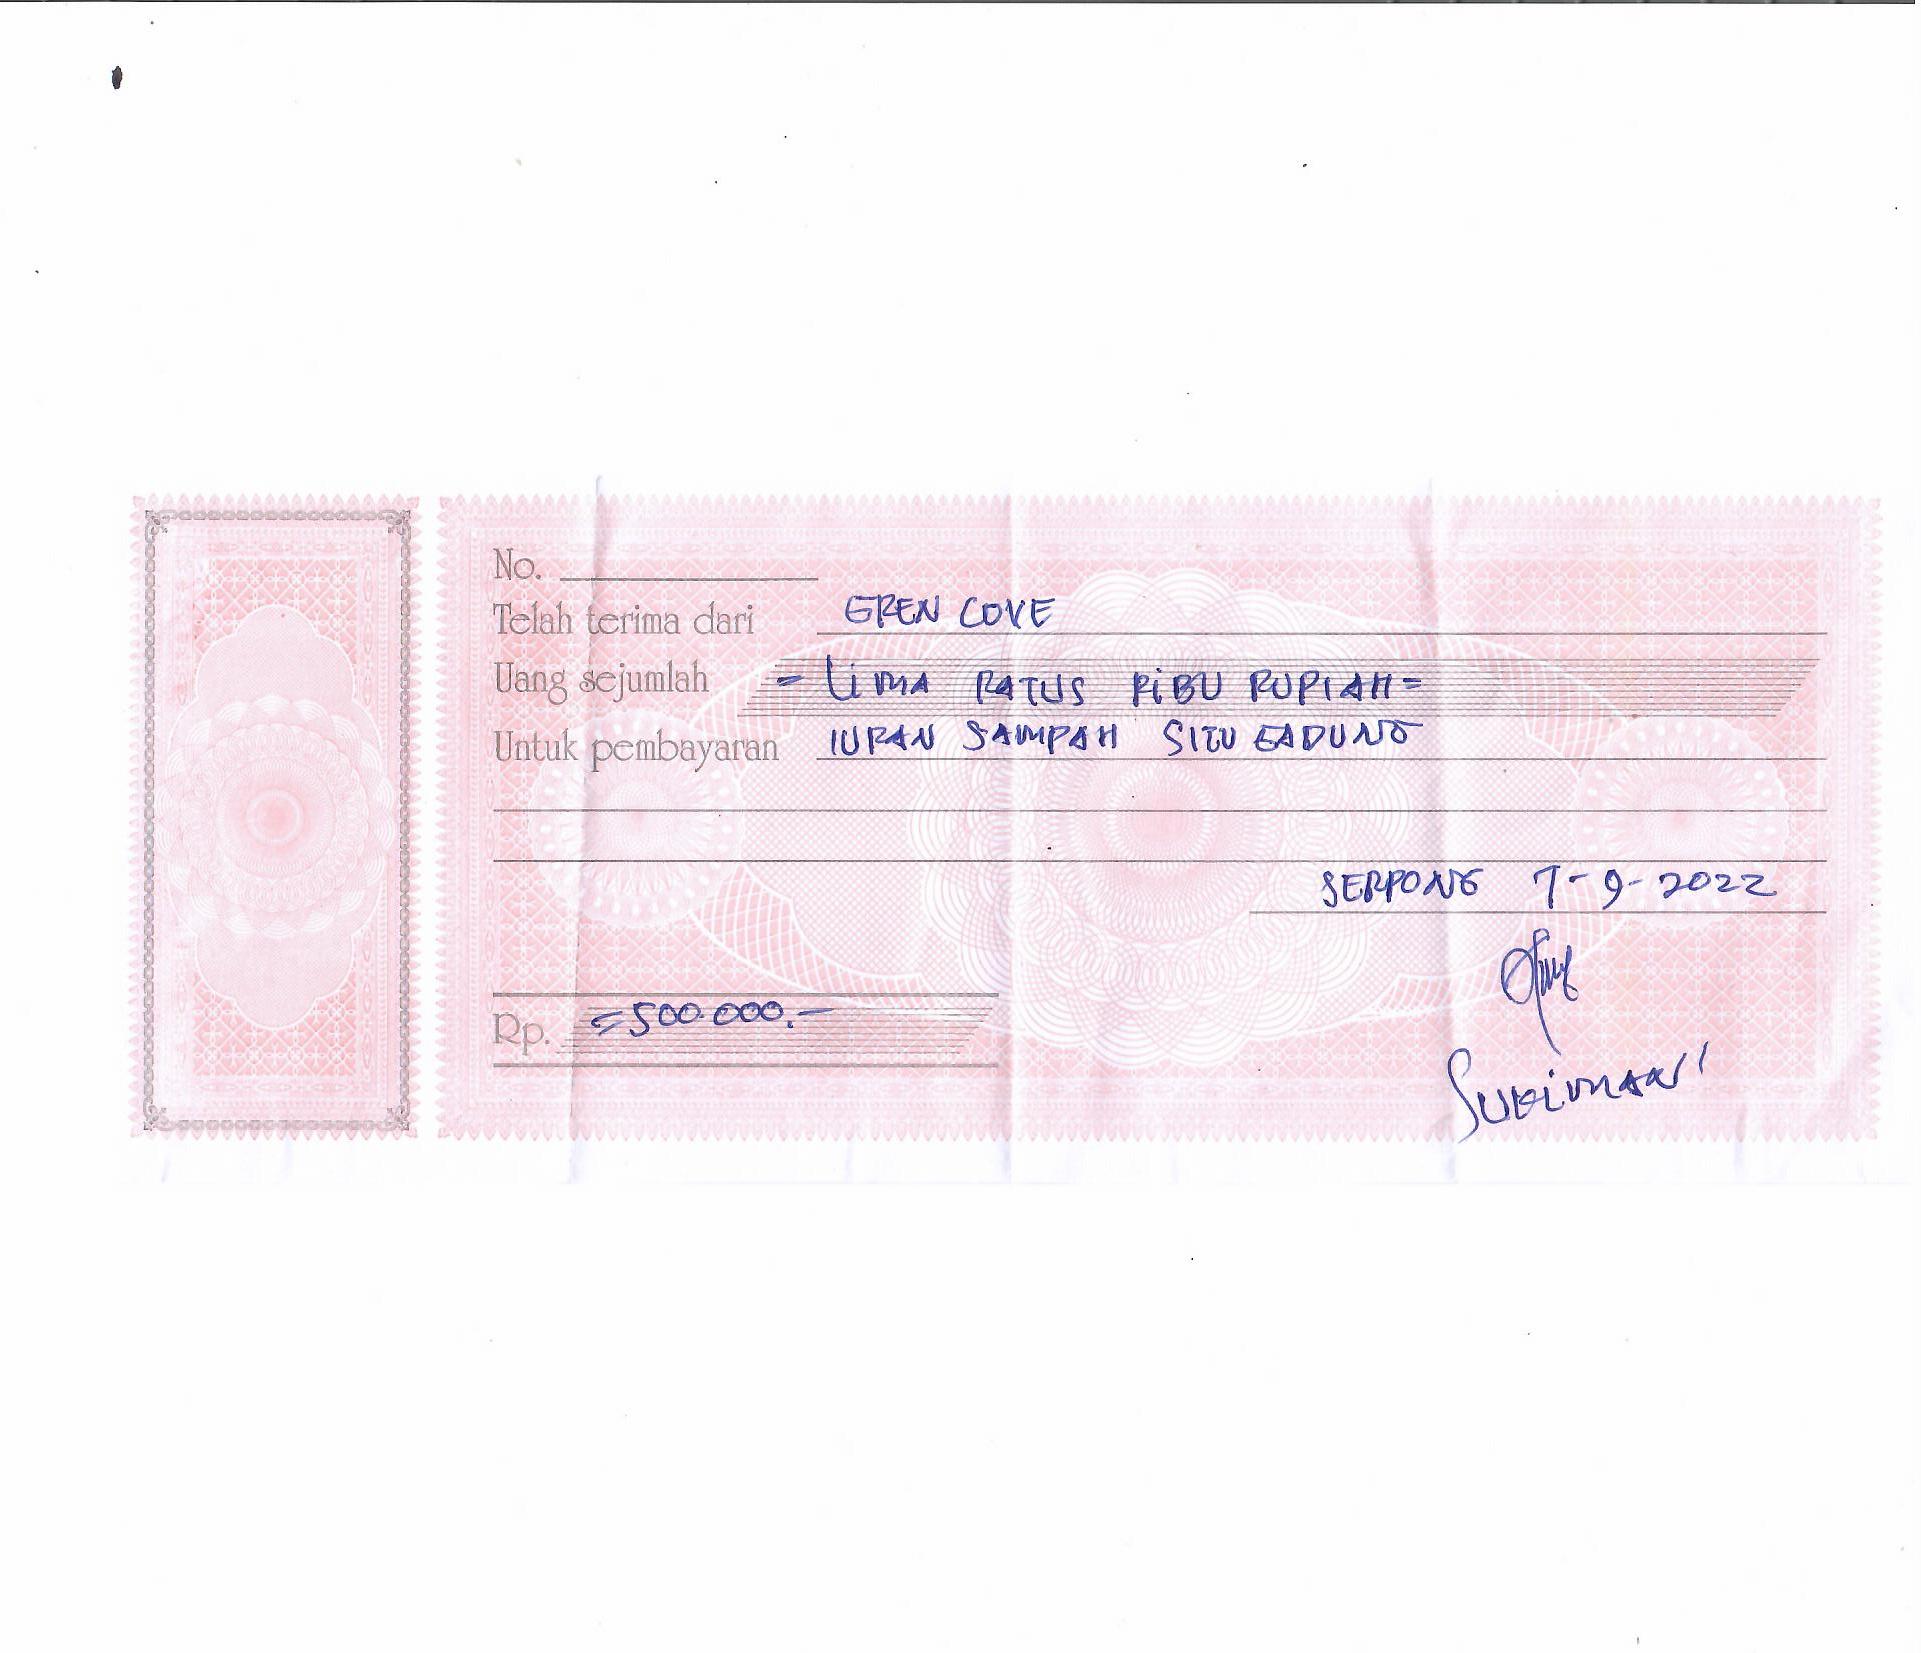 No.
Telah terima dari GREN COVE
Uang sejumlah = LIMA RATUS RIBU RUPIAH =
Untuk pembayaran IURAN SAMPAH SITU GADUNG
SERPONG 7-9-2022
Rp. =500.000.-